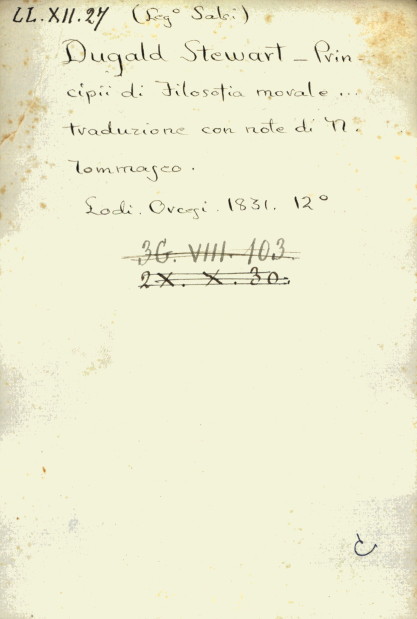 LL.XII.27 (Leg° Salvi)
Dugald Stewart - Prin-
cipii di Filosofia morale ...
traduzione con note di N.
Tommaseo.
Lodi. Orcesi. 1831. 12°
3G. VIII. 103.
2X. X. 30.